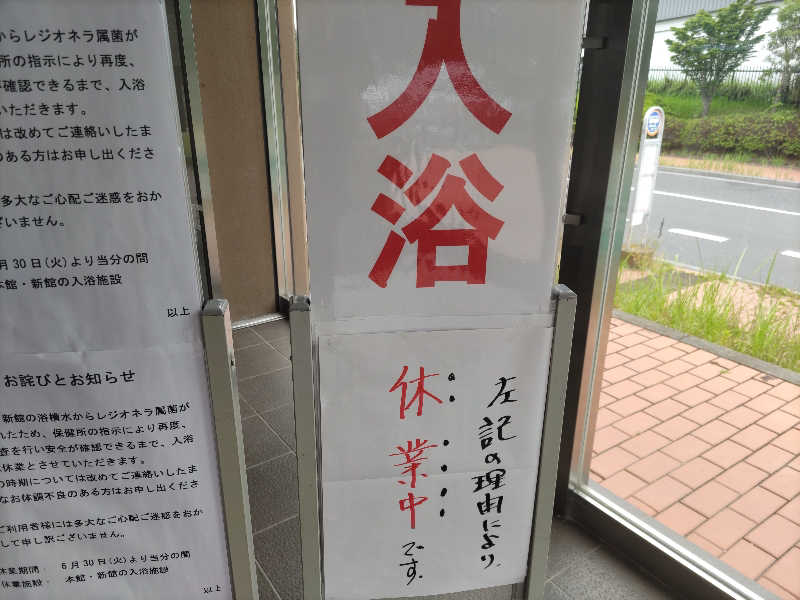 からレジオネラ属菌が
所の指示により再度、
が確認できるまで、入浴
いただきます。
は改めてご連絡いたしま
のある方はお申し出くださ
多大なご心配ご迷惑をおか
ざいません。
月30日(火)より当分の間
本館・新館の入浴施設
以上
お詫びとお知らせ
新館の浴槽水からレジオネラ属菌が
れたため、保健所の指示により再度、
査を行い安全が確認できるまで、入浴
休業とさせていただきます。
の時期については改めてご連絡いたしま
なお体調不良のある方はお申し出くださ
ご利用者様には多大なご心配ご迷惑をおか
して申し訳ございません。
休業期間: 6月30日(火)より当分の間
休業施設: 本館・新館の入浴施設
以上
入浴
左記の理由により
休業中です。